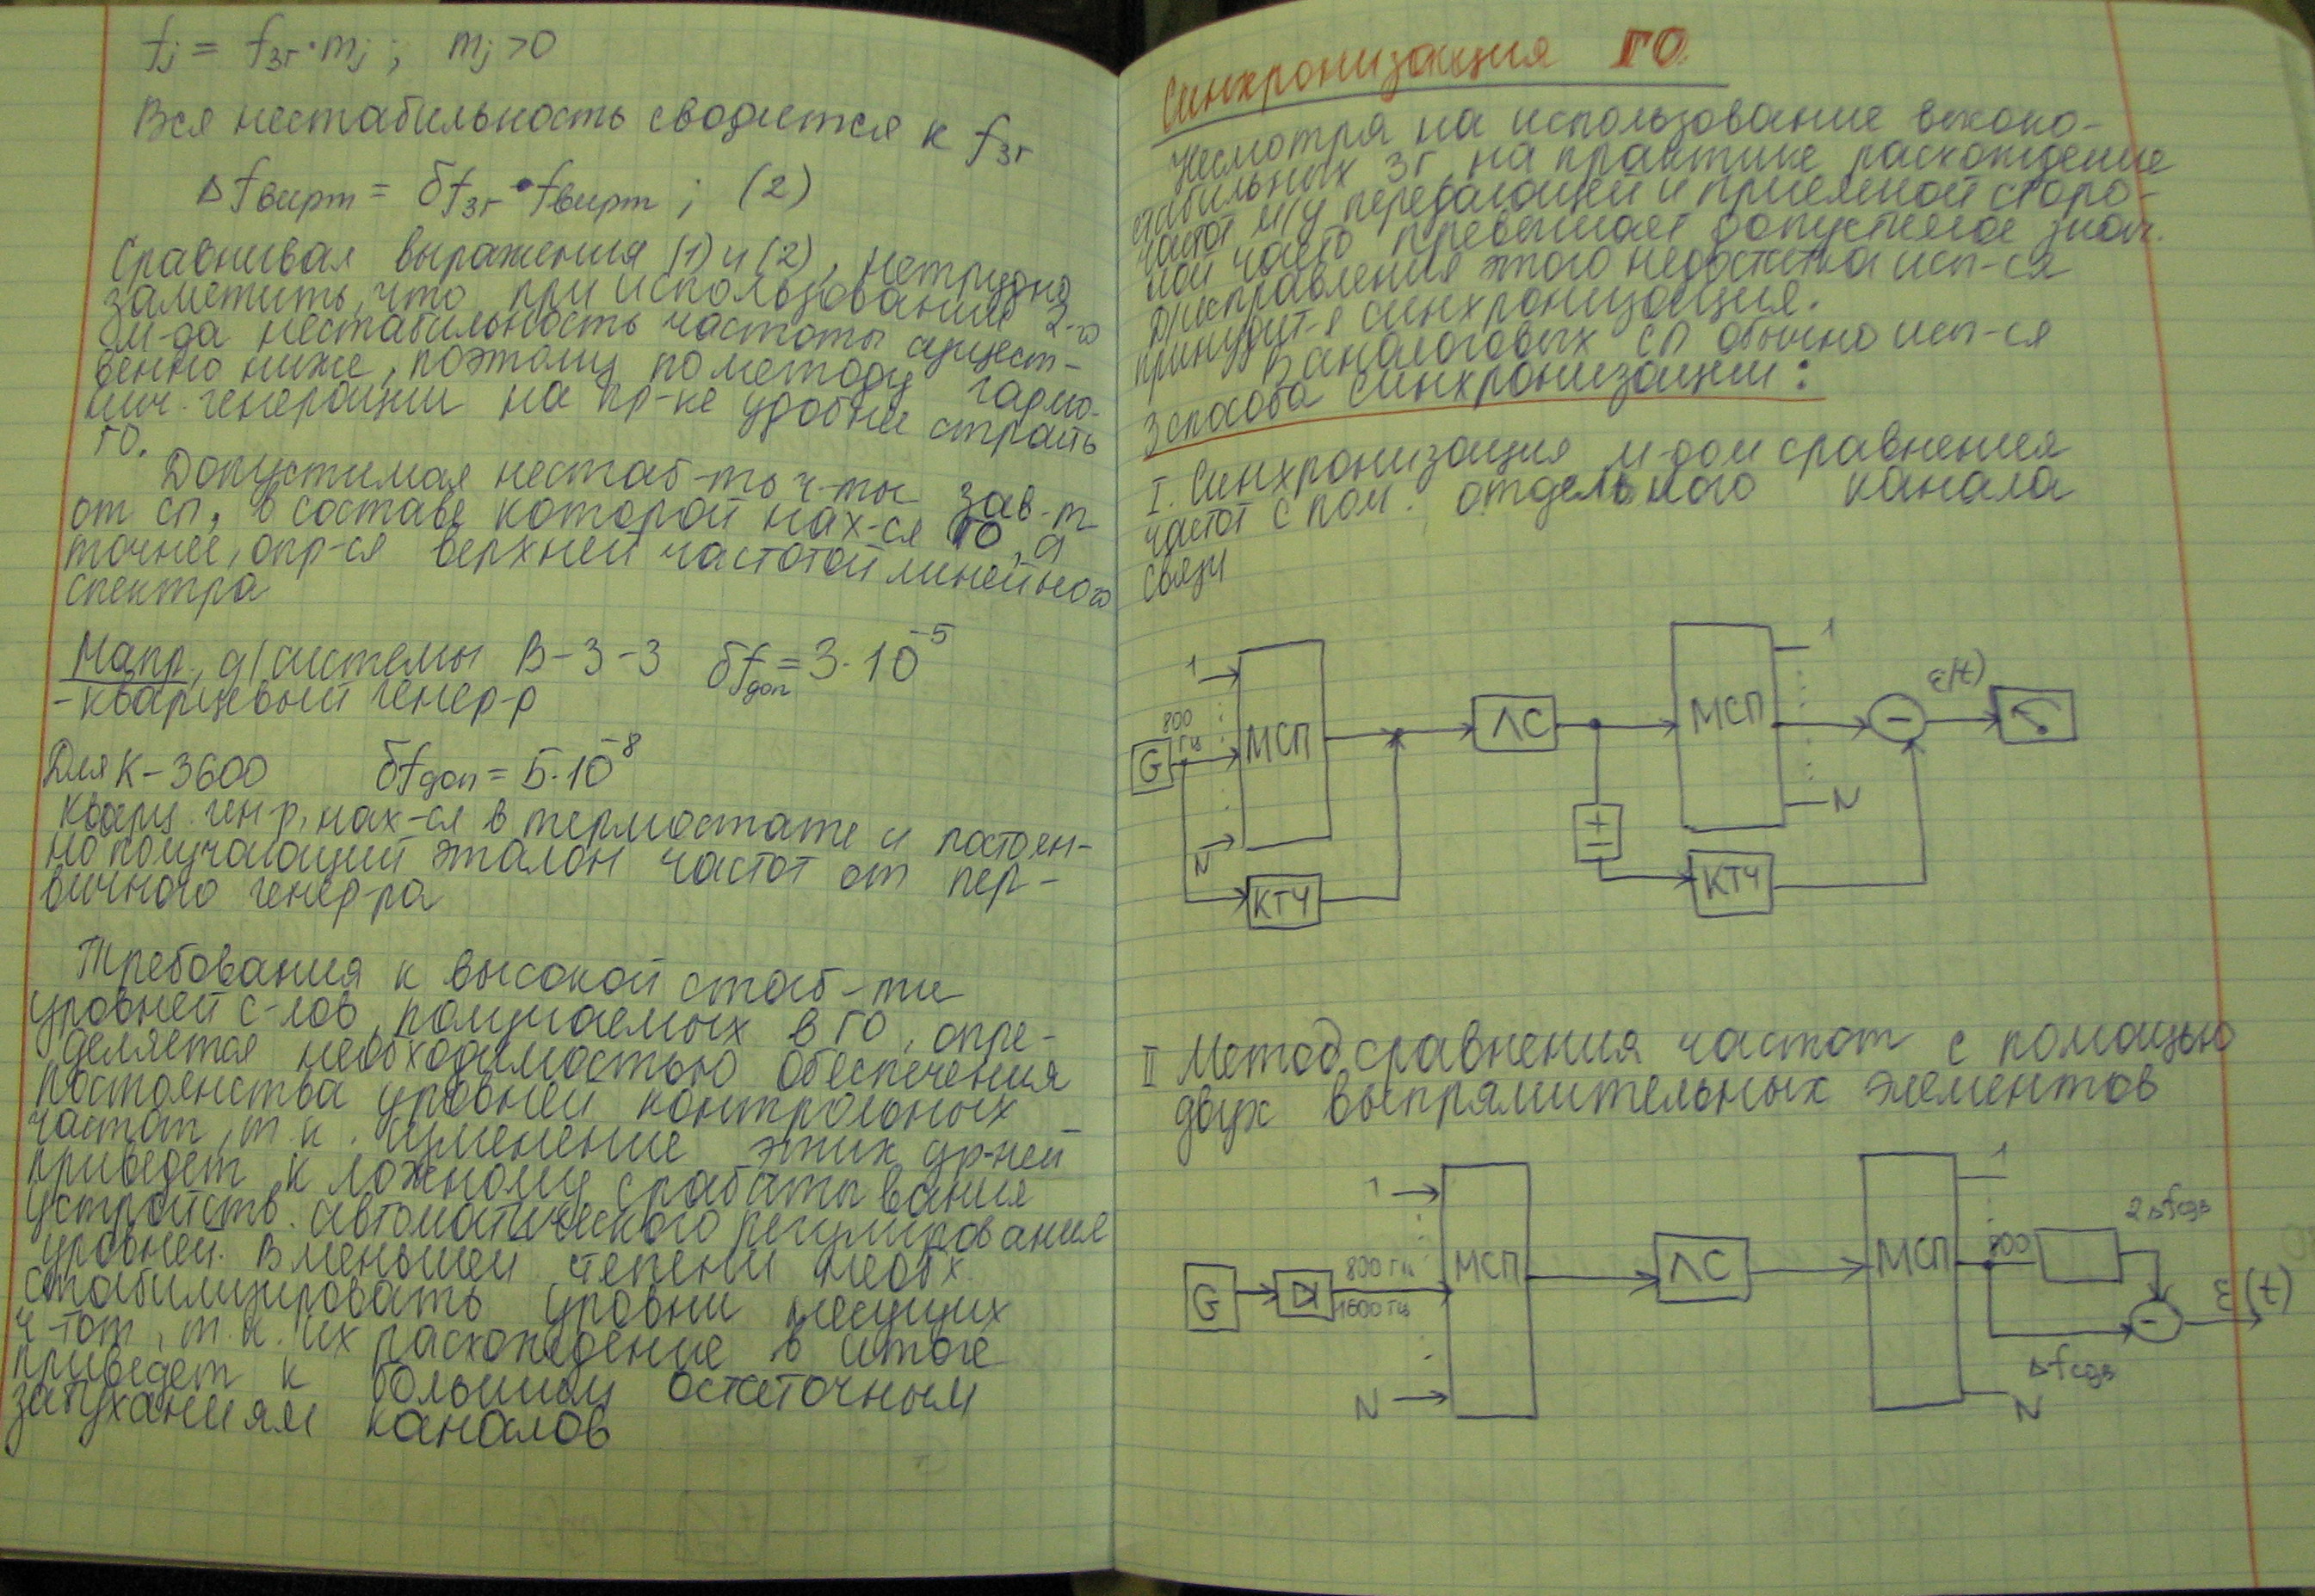 fj = fзг·mj ; mj >0
Вся нестабильность сводится к fзг
Δfвирт = δfзг·fвирт ; (2)
Сравнивая выражения (1) и (2), нетрудно
заметить, что при использовании 2-го
м-да нестабильность частоты сущест-
венно ниже, поэтому по методу гармо-
нич. генерации на пр-ке удобнее строить
ГО.
Допустимая нестаб-ть ч-ты зав-т
от СП, в составе которой нах-ся ГО, а
точнее, опр-ся верхней частотой линейного
спектра
Напр., д/системы В-3-3 δfдоп = 3·10⁻⁵
-кварцевый генер-р
Для К-3600 δfдоп = 5·10⁻⁸
кварц. ген-р, нах-ся в термостате и постоян-
но получающий эталон частот от пер-
вичного генер-ра
Требования к высокой стаб-ти
уровней с-лов, получаемых в ГО, опре-
деляется необходимостью обеспечения
постоянства уровней контрольных
частот, т.к. изменение этих ур-ней
приведет к ложному срабатывания
устройств автоматического регулирования
уровней. В меньшей степени необх.
стабилизировать уровни несущих
ч-тот, т.к. их расхождение в итоге
приведет к большим остаточным
затуханиям каналов
Синхронизация ГО.
Несмотря на использование высоко-
стабильных ЗГ, на практике расхождение
частот м/у передающей и приемной сторо-
ной часто превышает допустимое знач.
Д/исправления этого недостатка исп-ся
принудит-я синхронизация.
В аналоговых СП обычно исп-ся
3 способа синхронизации:
I. Синхронизация м-дом сравнения
частот с пом. отдельного канала
связи
1
800
Гц
G
МСП
N
КТЧ
ЛС
МСП
1
N
КТЧ
−
ε(t)
II Метод сравнения частот с помощью
двух выпрямительных элементов
1
G
800 Гц
1600 Гц
МСП
N
ЛС
МСП
1
800
2Δfсдв
−
ε(t)
Δfсдв
N